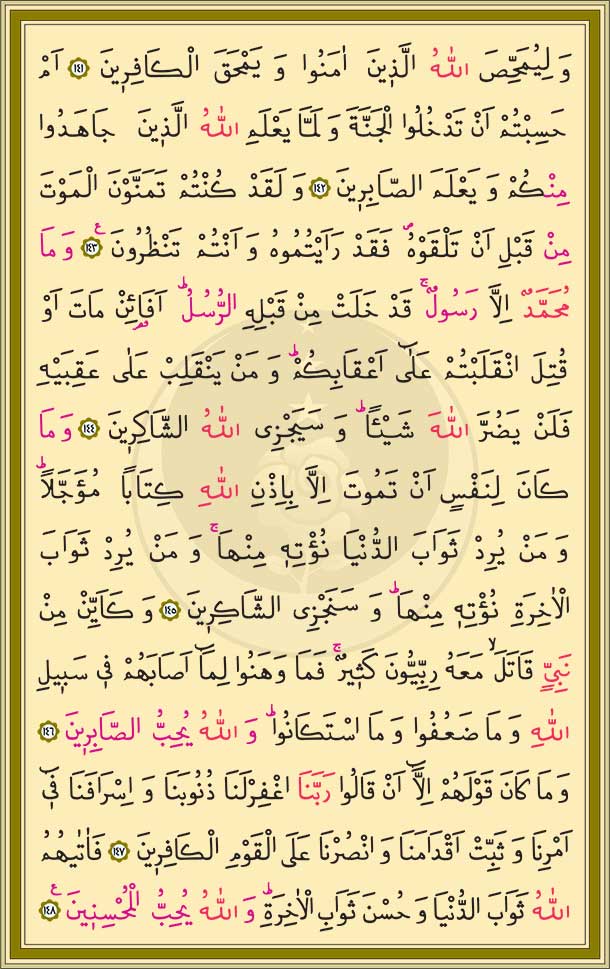 وَ لِيُمَحِّصَ اللّٰهُ الَّذ۪ينَ اٰمَنُوا وَ يَمْحَقَ الْكَافِر۪ينَ ﴿١٤١﴾ اَمْ
حَسِبْتُمْ اَنْ تَدْخُلُوا الْجَنَّةَ وَ لَمَّا يَعْلَمِ اللّٰهُ الَّذ۪ينَ جَاهَدُوا
مِنْكُمْ وَ يَعْلَمَ الصَّابِر۪ينَ ﴿١٤٢﴾ وَ لَقَدْ كُنْتُمْ تَمَنَّوْنَ الْمَوْتَ
مِنْ قَبْلِ اَنْ تَلْقَوْهُۖ فَقَدْ رَاَيْتُمُوهُ وَ اَنْتُمْ تَنْظُرُونَ ﴿١٤٣﴾ ع وَ مَا
مُحَمَّدٌ اِلَّا رَسُولٌۚ قَدْ خَلَتْ مِنْ قَبْلِهِ الرُّسُلُۜ اَفَا۬ئِنْ مَاتَ اَوْ
قُتِلَ انْقَلَبْتُمْ عَلٰٓى اَعْقَابِكُمْۜ وَ مَنْ يَنْقَلِبْ عَلٰى عَقِبَيْهِ
فَلَنْ يَضُرَّ اللّٰهَ شَيْـًٔاۜ وَ سَيَجْزِى اللّٰهُ الشَّاكِر۪ينَ ﴿١٤٤﴾ وَ مَا
كَانَ لِنَفْسٍ اَنْ تَمُوتَ اِلَّا بِاِذْنِ اللّٰهِ كِتَابًا مُؤَجَّلًاۜ
وَ مَنْ يُرِدْ ثَوَابَ الدُّنْيَا نُؤْتِه۪ مِنْهَاۚ وَ مَنْ يُرِدْ ثَوَابَ
الْاٰخِرَةِ نُؤْتِه۪ مِنْهَاۜ وَ سَنَجْزِى الشَّاكِر۪ينَ ﴿١٤٥﴾ وَ كَاَيِّنْ مِنْ
نَبِيٍّ قَاتَلَۙ مَعَهُ رِبِّيُّونَ كَث۪يرٌۚ فَمَا وَهَنُوا لِمَٓا اَصَابَهُمْ ف۪ى سَب۪يلِ
اللّٰهِ وَ مَا ضَعُفُوا وَ مَا اسْتَكَانُواۜ وَ اللّٰهُ يُحِبُّ الصَّابِر۪ينَ ﴿١٤٦﴾
وَ مَا كَانَ قَوْلَهُمْ اِلَّٓا اَنْ قَالُوا رَبَّنَا اغْفِرْلَنَا ذُنُوبَنَا وَ اِسْرَافَنَا ف۪ٓى
اَمْرِنَا وَ ثَبِّتْ اَقْدَامَنَا وَ انْصُرْنَا عَلَى الْقَوْمِ الْكَافِر۪ينَ ﴿١٤٧﴾ فَاٰتٰيهُمُ
اللّٰهُ ثَوَابَ الدُّنْيَا وَ حُسْنَ ثَوَابِ الْاٰخِرَةِۜ وَ اللّٰهُ يُحِبُّ الْمُحْسِن۪ينَ ﴿١٤٨﴾ ع